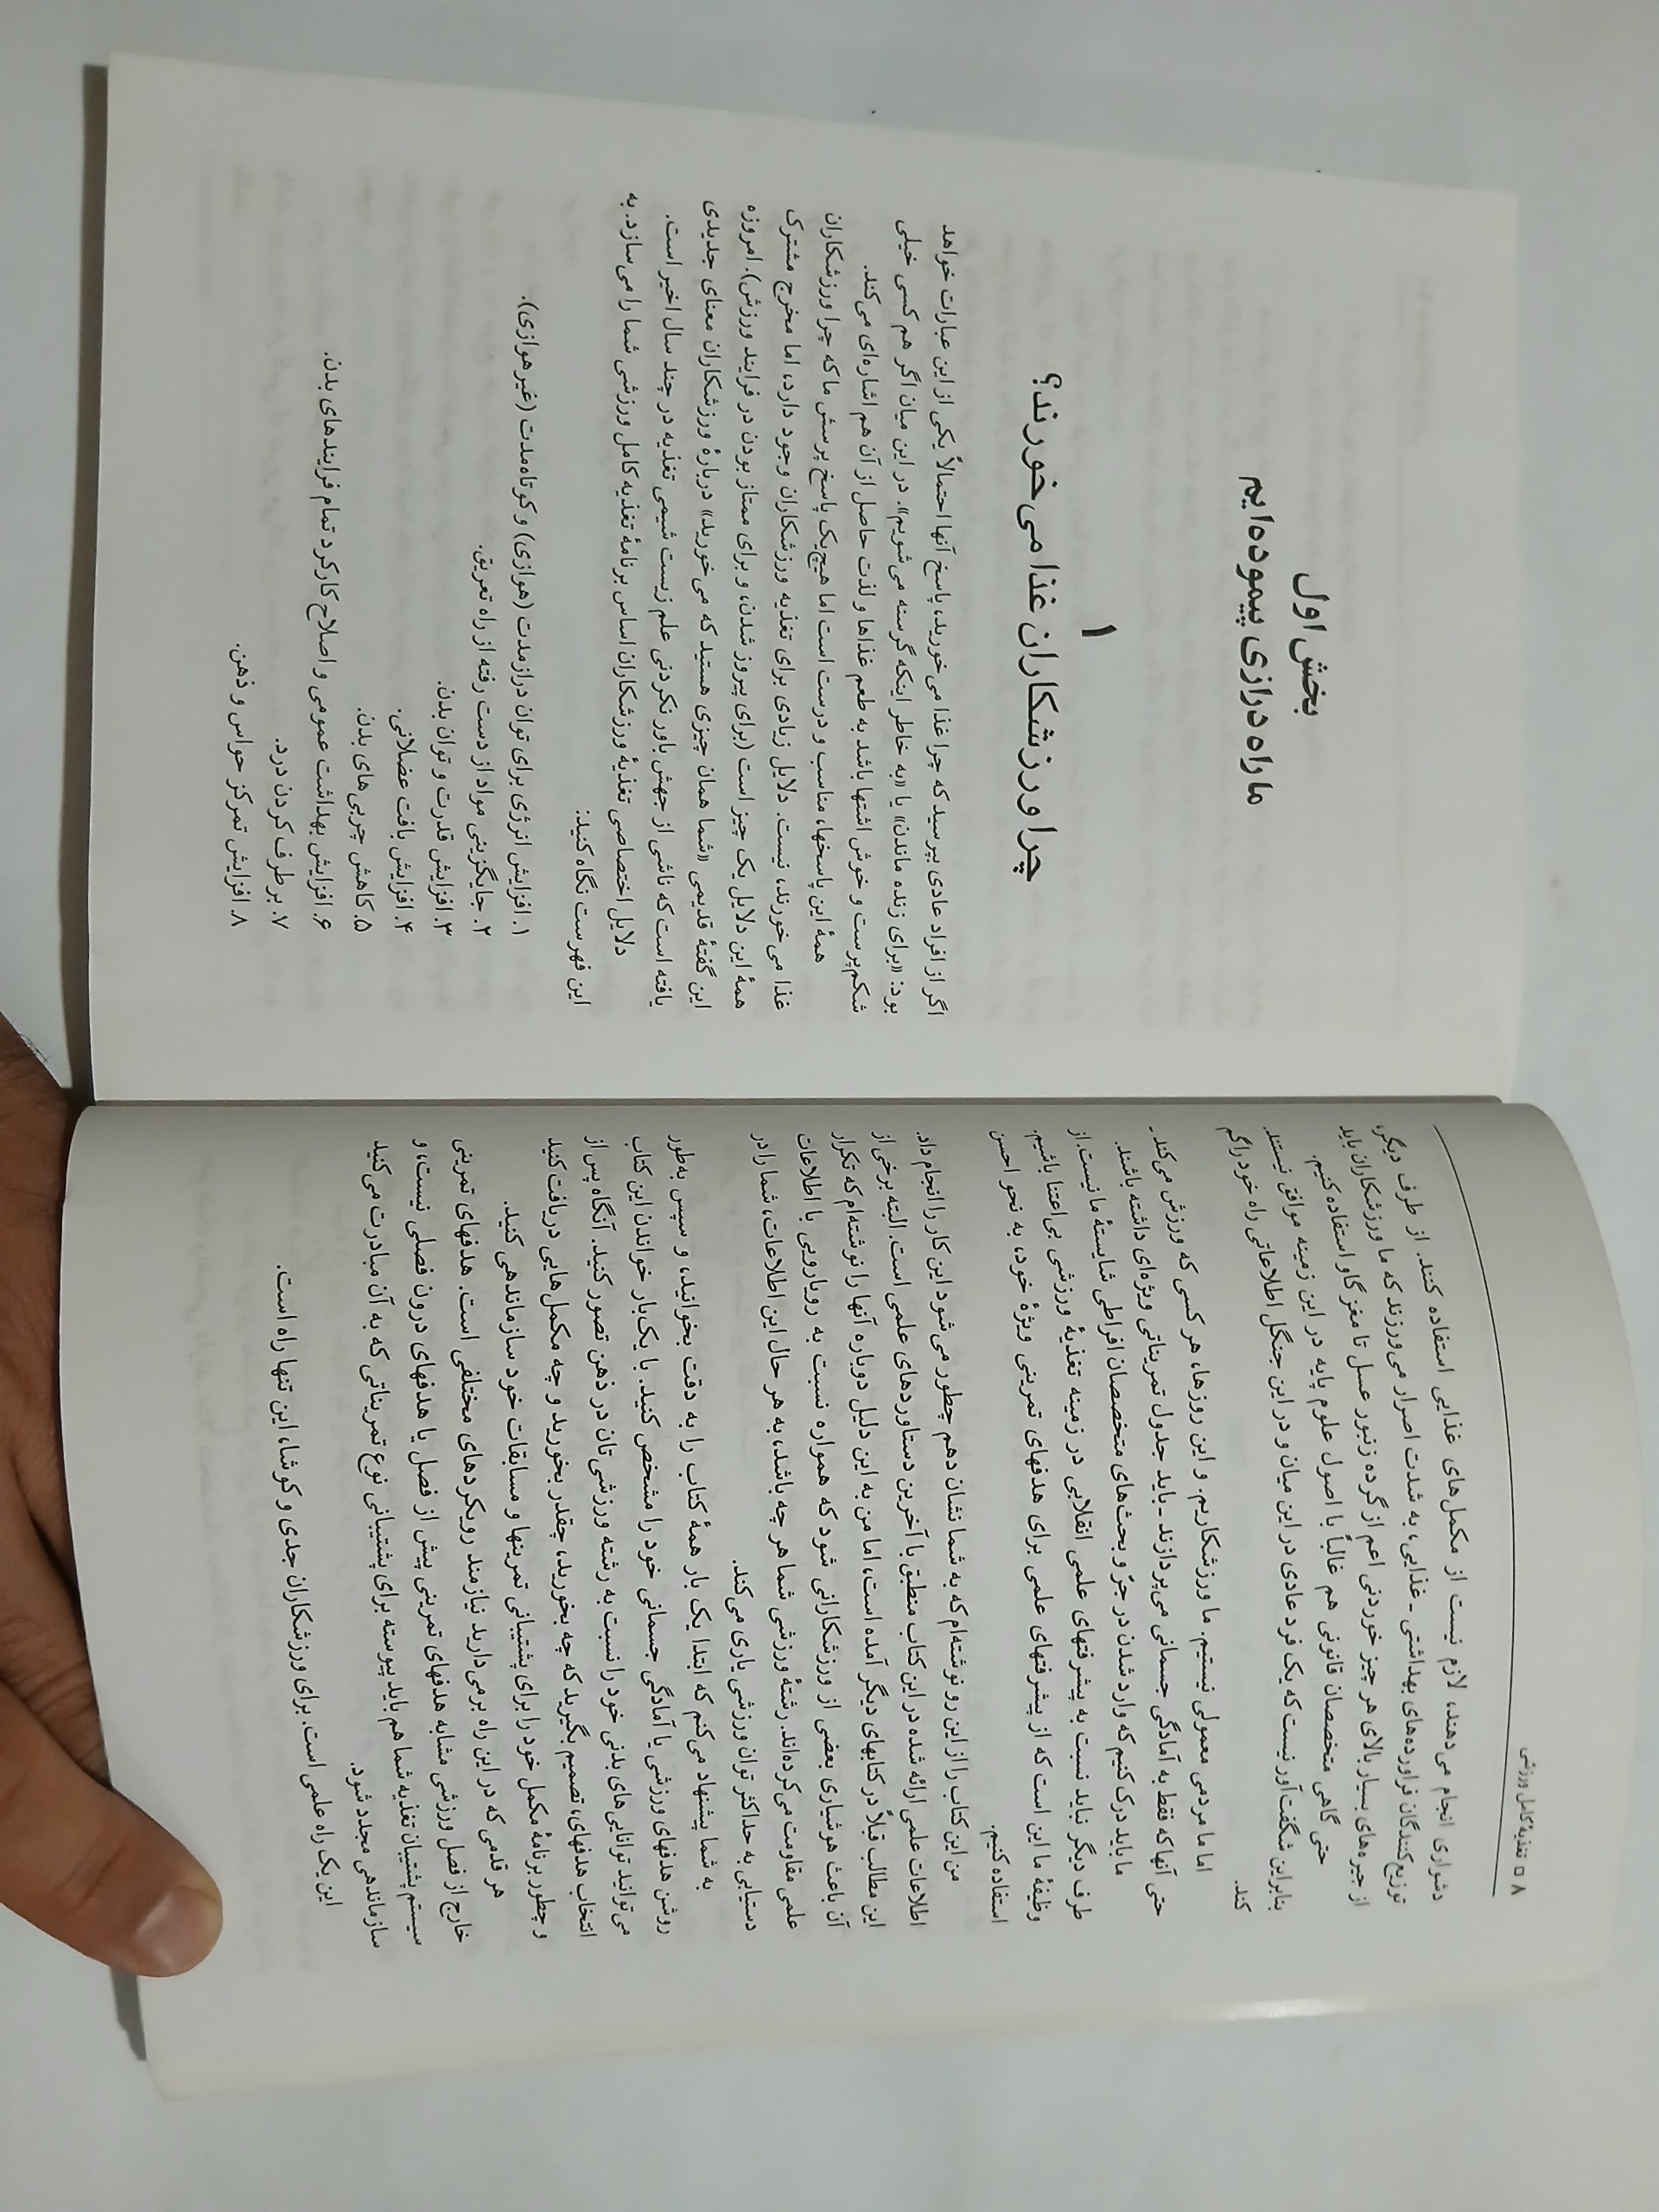 ۸ □ تغذیهٔ کامل ورزشی
دشواری انجام می‌دهند، لازم نیست از مکمل‌های غذایی استفاده کنند. از طرف دیگر،
توزیع‌کنندگان فراورده‌های بهداشتی ـ غذایی، به شدت اصرار می‌ورزند که ما ورزشکاران باید
از جیره‌های بسیار بالای هر چیز خوردنی اعم از گرده زنبور عسل تا مغز گاو استفاده کنیم.
حتی گاهی متخصصان قانونی هم غالباً با اصول علوم پایه در این زمینه موافق نیستند.
بنابراین شگفت‌آور نیست که یک فرد عادی در این میان و در این جنگل اطلاعاتی راه خود را گم
کند.
اما ما مردمی معمولی نیستیم. ما ورزشکاریم. و این روزها، هر کسی که ورزش می‌کند ـ
حتی آنها که فقط به آمادگی جسمانی می‌پردازند ـ باید جدول تمریناتی ویژه‌ای داشته باشند.
ما باید درک کنیم که وارد شدن در جرّ و بحث‌های متخصصان افراطی شایستهٔ ما نیست. از
طرف دیگر نباید نسبت به پیشرفتهای علمی انقلابی در زمینه تغذیهٔ ورزشی بی‌اعتنا باشیم.
وظیفهٔ ما این است که از پیشرفتهای علمی برای هدفهای تمرینی ویژهٔ خود، به نحو احسن
استفاده کنیم.
من این کتاب را از این رو نوشته‌ام که به شما نشان دهم چطور می‌شود این کار را انجام داد.
اطلاعات علمی ارائه شده در این کتاب منطبق با آخرین دستاوردهای علمی است. البته برخی از
این مطالب قبلاً در کتابهای دیگر آمده است، اما من به این دلیل دوباره آنها را نوشته‌ام که تکرار
آن باعث هوشیاری بعضی از ورزشکارانی شود که همواره نسبت به رویارویی با اطلاعات
علمی مقاومت می‌کرده‌اند. رشتهٔ ورزشی شما هر چه باشد، به هر حال این اطلاعات، شما را در
دستیابی به حداکثر توان ورزشی یاری می‌کند.
به شما پیشنهاد می‌کنم که ابتدا یک بار همهٔ کتاب را به دقت بخوانید، و سپس به‌طور
روشن هدفهای ورزشی یا آمادگی جسمانی خود را مشخص کنید. با یک‌بار خواندن این کتاب
می‌توانید توانایی‌های بدنی خود را نسبت به رشته ورزشی‌تان در ذهن تصور کنید. آنگاه پس از
انتخاب هدفهای، تصمیم بگیرید که چه بخورید، چقدر بخورید و چه مکمل‌هایی دریافت کنید
و چطور برنامهٔ مکمل خود را برای پشتیبانی تمرینها و مسابقات خود سازماندهی کنید.
هر قدمی که در این راه برمی‌دارید نیازمند رویکردهای مختلفی است. هدفهای تمرینی
خارج از فصل ورزشی مشابه هدفهای تمرینی پیش از فصل یا هدفهای درون فصلی نیست، و
سیستم پشتیبان تغذیه شما هم باید پیوسته برای پشتیبانی نوع تمریناتی که به آن مبادرت می‌کنید
سازماندهی مجدد شود.
این یک راه علمی است. برای ورزشکاران جدی و کوشا، این تنها راه است.
بخش اول
ما راه درازی پیموده‌ایم
۱
چرا ورزشکاران غذا می‌خورند؟
اگر از افراد عادی بپرسید که چرا غذا می‌خورید، پاسخ آنها احتمالاً یکی از این عبارات خواهد
بود: «برای زنده ماندن» یا «به خاطر اینکه گرسنه می‌شویم». در این میان اگر هم کسی خیلی
شکم‌پرست و خوش اشتها باشد به طعم غذاها و لذت حاصل از آن هم اشاره‌ای می‌کند.
همهٔ این پاسخها، مناسب و درست است اما هیچ‌یک پاسخ پرسش ما که چرا ورزشکاران
غذا می‌خورند، نیست. دلایل زیادی برای تغذیه ورزشکاران وجود دارد، اما مخرج مشترک
همهٔ این دلایل یک چیز است (برای پیروز شدن، و برای ممتاز بودن در فرایند ورزش). امروزه
این گفتهٔ قدیمی «شما همان چیزی هستید که می‌خورید» دربارهٔ ورزشکاران معنای جدیدی
یافته است که ناشی از جهش باور نکردنی علم زیست شیمی تغذیه در چند سال اخیر است.
دلایل اختصاصی تغذیهٔ ورزشکاران اساس برنامهٔ تغذیه کامل ورزشی شما را می‌سازد. به
این فهرست نگاه کنید:
۱. افزایش انرژی برای توان درازمدت (هوازی) و کوتاه‌مدت (غیر هوازی).
۲. جایگزینی مواد از دست رفته از راه تعریق.
۳. افزایش قدرت و توان بدن.
۴. افزایش بافت عضلانی.
۵. کاهش چربی‌های بدن.
۶. افزایش بهداشت عمومی و اصلاح کارکرد تمام فرایندهای بدن.
۷. برطرف کردن درد.
۸. افزایش تمرکز حواس و ذهن.